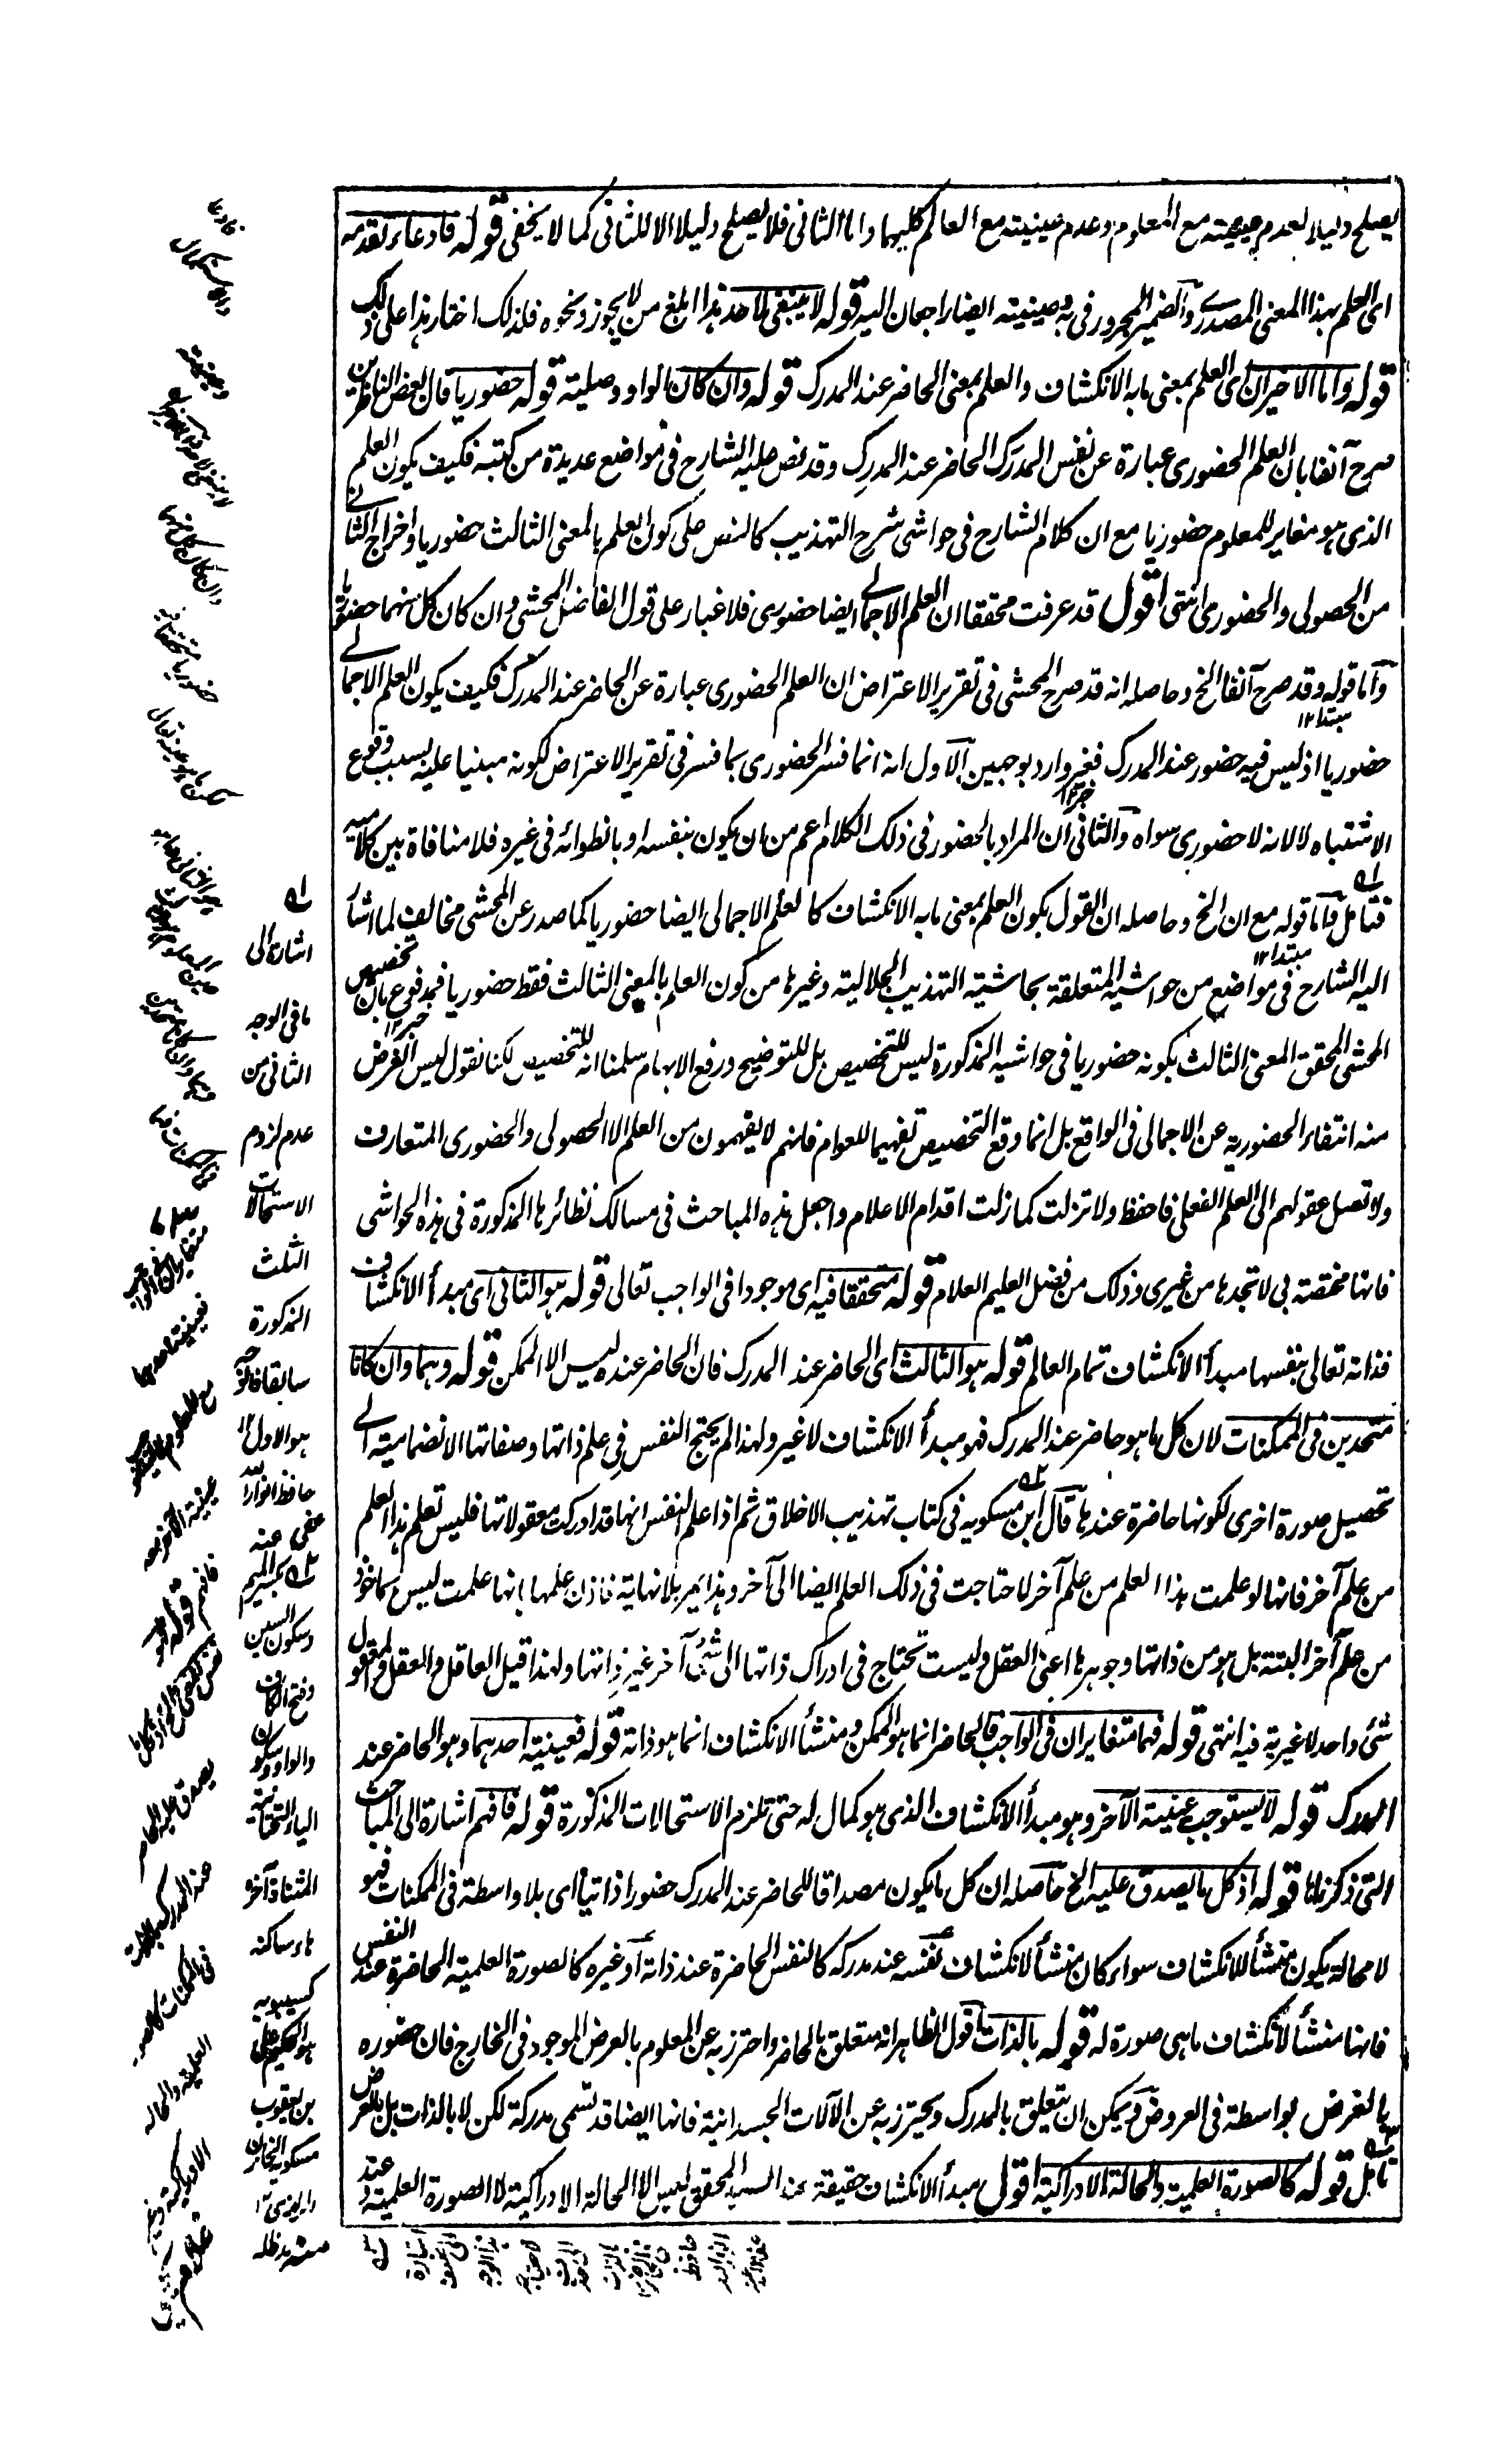 يصلح دليلا لعدم عينيته مع المعلوم وعدم عينيته مع العالم كليهما واما الثاني فلا يصلح دليلا الا للثاني كما لا يخفى قوله فادعاء تقدمه
اى العلم بهذا المعنى المصدرى والضمير المجرور فى به وعينيته ايضا راجعان اليه قوله لا ينبغى لاحد هذا ابلغ من لا يجوز ونحوه فلذلك اختار هذا على ذلك
قوله واما الاخيران اى العلم بمعنى ما به الانكشاف والعلم بمعنى الحاضر عند المدرك قوله وان كان الواو وصلية قوله حضوريا قال بعض الناظرين
صرح آنفا بان العلم الحضورى عبارة عن نفس المدرَك الحاضر عند المدرِك وقد نص عليه الشارح فى مواضع عديدة من كتبه فكيف يكون العلم
الذى هو مغاير للمعلوم حضوريا مع ان كلام الشارح فى حواشى شرح التهذيب كالنص على كون العلم بالمعنى الثالث حضوريا واخراج الثانى
من الحصولى والحضورى انتهى اقول قد عرفت محققا ان العلم الاجمالى ايضا حضورى فلا غبار على قول الفاضل المحشى وان كان كل منهما حضوريا
واما قوله وقد صرح آنفا الخ وحاصله انه قد صرح المحشى فى تقرير الاعتراض ان العلم الحضورى عبارة عن الحاضر عند المدرك فكيف يكون العلم الاجمالى
مبتدا١٢
حضوريا اذ ليس فيه حضور عند المدرك فغير وارد بوجهين الاول انه انما فسر الحضورى بما فسر فى تقرير الاعتراض لكونه مبنيا عليه بسبب وقوع
خبر١٢
الاشتباه لا لانه لا حضورى سواه والثانى ان المراد بالحضور فى ذلك الكلام اعم من ان يكون بنفسه او بانطوائه فى غيره فلا منافاة بين كلاميه
فتامل واما قوله مع ان الخ وحاصله ان القول بكون العلم بمعنى ما به الانكشاف كالعلم الاجمالى ايضا حضوريا كما صدر عن المحشى مخالف لما اشار
مبتدا١٢
اليه الشارح فى مواضع من حواشيه المتعلقة بحاشية التهذيب الجلالية وغيرها من كون العلم بالمعنى الثالث فقط حضوريا فمدفوع بان تخصيص
خبر١٢
المحشى المحقق المعنى الثالث بكونه حضوريا فى حواشيه المذكورة ليس للتخصيص بل للتوضيح ورفع الابهام سلمنا انه للتخصيص لكنا نقول ليس الغرض
منه انتفاء الحضورية عن الاجمالى فى الواقع بل انما وقع التخصيص تفهيما للعوام فانهم لا يفهمون من العلم الا الحصولى والحضورى المتعارف
ولا تصل عقولهم الى العلم الفعلى فاحفظ ولا تزلت كما زلت اقدام الاعلام واجعل هذه المباحث فى مسالك نظائرها المذكورة فى هذه الحواشى
فانها مختصة بى لا تجدها من غيرى وذلك من فضل العليم العلام قوله متحققا فيه اى موجودا فى الواجب تعالى قوله هو الثانى اى مبدأ الانكشاف
فذاته تعالى بنفسها مبدأ الانكشاف تمام العالم قوله هو الثالث اى الحاضر عند المدرك فان الحاضر عنده ليس الا الممكن قوله وهما وان كانا
متحدين فى الممكنات لان كل ما هو حاضر عند المدرك فهو مبدأ الانكشاف لا غير ولهذا لم يحتج النفس فى علم ذاتها وصفاتها الانضمامية الى
تحصيل صورة اخرى لكونها حاضرة عندها قال ابن مسكويه فى كتاب تهذيب الاخلاق ثم اذا علم النفس انها قد ادركت معقولاتها فليس تعلم هذا العلم
من علم آخر فانها لو علمت هذا العلم من علم آخر لاحتاجت فى ذلك العلم ايضا الى آخر وهذا يمر بلا نهاية فاذن علمها بانها علمت ليس ماخوذ
من علم آخر البتة بل هو من ذاتها وجوهرها اعنى العقل وليست تحتاج فى ادراك ذاتها الى شئ آخر غير ذاتها ولهذا قيل العاقل والعقل والمعقول
شئ واحد لا غيرية فيه انتهى قوله فهما متغايران فى الواجب فالحاضر انما هو الممكن ومنشأ الانكشاف انما هو ذاته قوله فعينية احدهما وهو الحاضر عند
المدرك قوله لا يستوجب عينية الآخر وهو مبدأ الانكشاف الذى هو كمال له حتى تلزم الاستحالات المذكورة قوله فافهم اشارة الى المباحث
التى ذكرناها قوله اذ كل ما يصدق عليه الخ حاصله ان كل ما يكون مصداقا للحاضر عند المدرك حضورا ذاتيا اى بلا واسطة فى الممكنات فهو
لا محالة يكون منشأ للانكشاف سواء كان منشأ لانكشاف نفسه عند مدركه كالنفس الحاضرة عند ذاته او غيره كالصورة العلمية الحاضرة عند النفس
فانها منشأ لانكشاف ما هى صورة له قوله بالذات اقول الظاهر انه متعلق بالحاضر واحترز به عن المعلوم بالعرض الموجود فى الخارج فان حضوره
بالعرض بواسطة فى العروض ويمكن ان يتعلق بالمدرك ويحترز به عن الآلات الجسدانية فانها ايضا قد تسمى مدركة لكن لا بالذات بل بالعرض
تامل قوله كالصورة العلمية والحالة الادراكية اقول مبدأ الانكشاف حقيقة عند السيد المحقق ليس الا الحالة الادراكية لا الصورة العلمية وعند
اشارة الى
ما فى الوجه
الثانى من
عدم لزوم
الاستحالات
الثلث
المذكورة
سابقا
هو الاول١٢
حافظ
عفى عنه
بكسر الميم
وسكون السين
وفتح الكاف
والواو وسكون
الياء التحتانية
المثناة آخره
هاء ساكنة
كسيبويه
بن يعقوب
مسكويه الخازن
الرازى١٢
منه مدظله